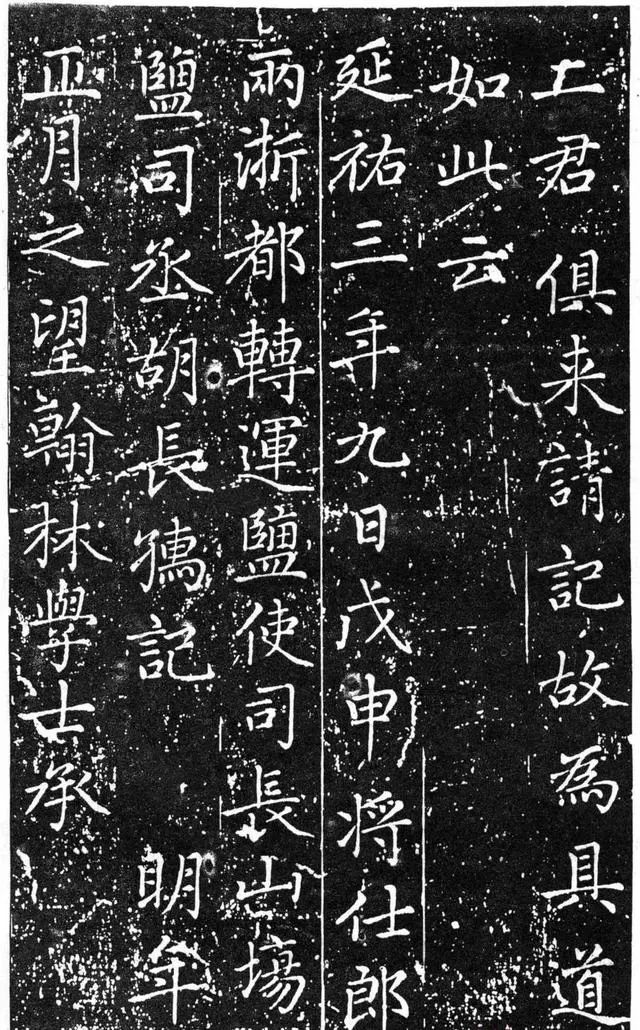 土君俱来請記故為具道
如此云
延祐三年九日戊申将仕郎
兩浙都轉運鹽使司長山場
鹽司丞胡長孺記 明年
正月之望翰林學士承